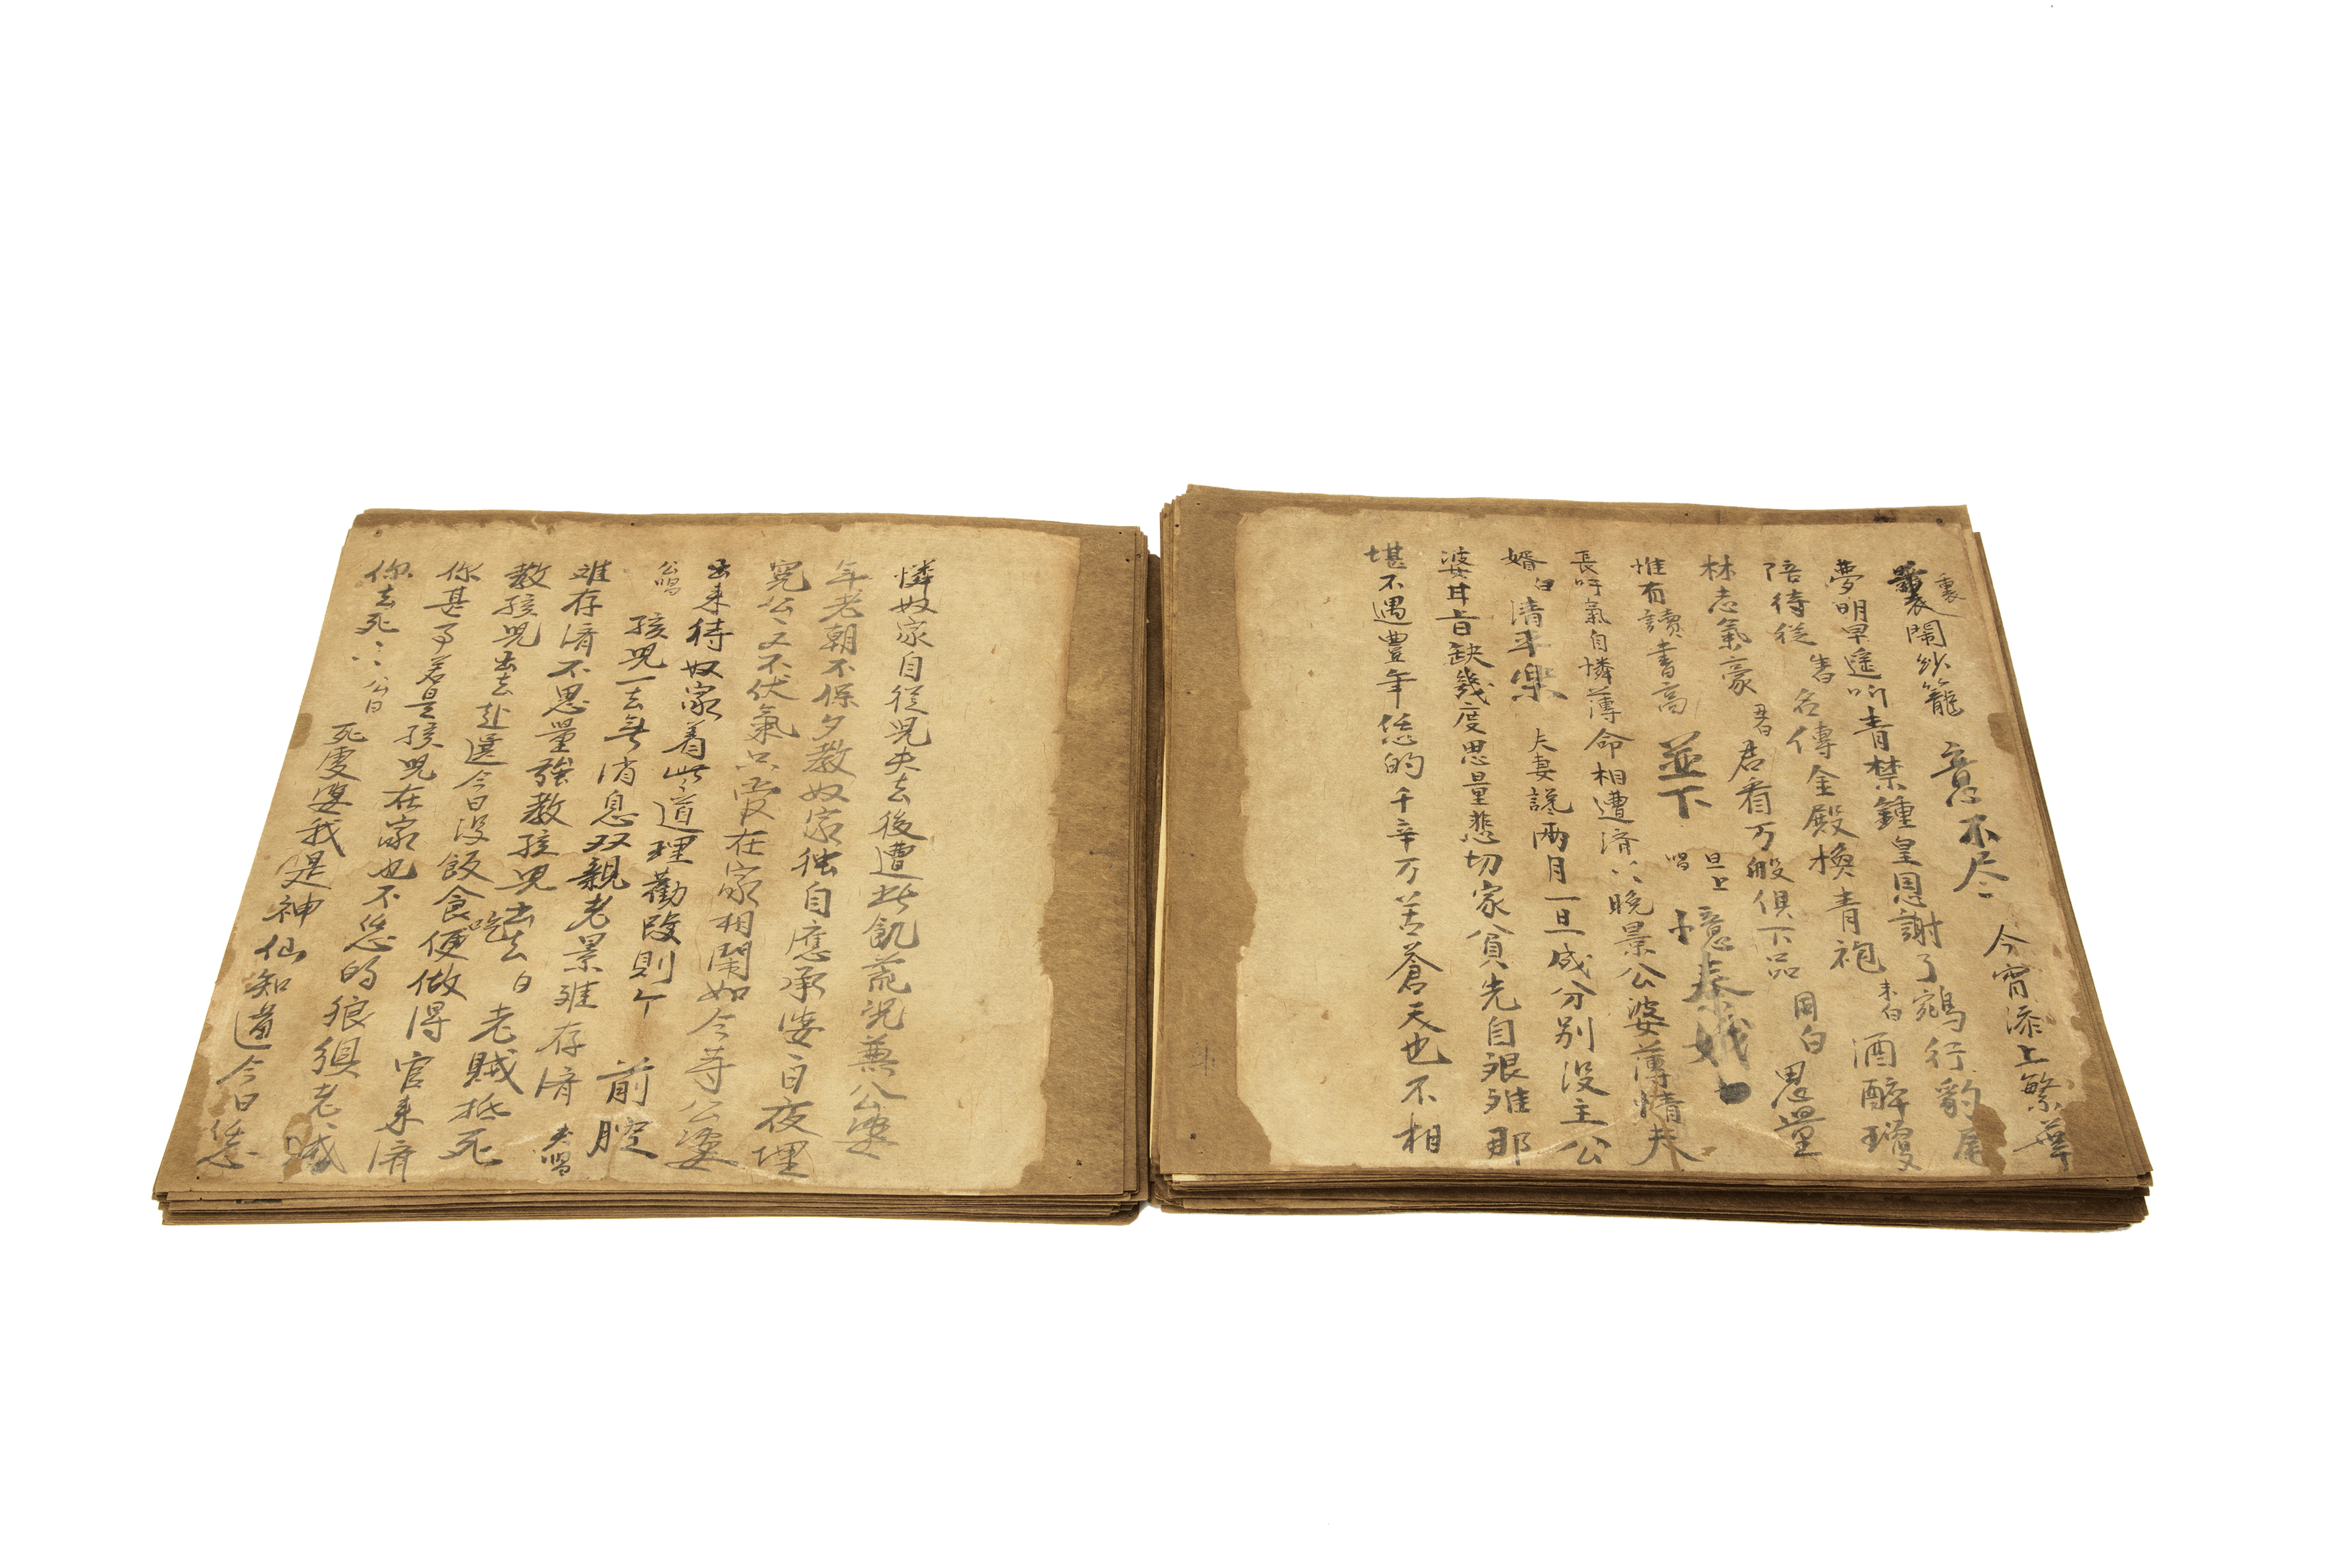 今宵添上繁華
重裏鬧紗籠 意不尽
夢明早遥听青禁鐘皇恩謝了鵷行豹尾
陪待從 生白 名傳金殿換青袍 末白 酒醉瓊
林志氣豪 丑白 君看万般俱下品 同白 思量
惟有讀書高 並下 旦上唱 憶秦娥
長吁氣自憐薄命相遭濟〻晚景公婆薄情夫
婿 白 清平樂 夫妻謊兩月一旦成分别没主公
婆甘旨缺幾度思量悲切家貧先自艱难那
堪不遇豐年恁的千辛万苦蒼天也不相
憐奴家自從兒夫去後遭此飢荒况兼公婆
年老朝不保夕教奴家独自應承婆〻日夜埋
冤公〻又不伏氣只管在家相鬧如今等公婆
出來待奴家着些道理勸改則个
公唱 孩兒一去無消息双親老景难存濟 前腔 夫唱
难存濟不思量強教孩兒出去 白 老賊抵死
教孩兒出去赴選今日没飯吃
你甚事若是孩兒在家也不恁的狼狽老賊
你去死〻 公白 死婆婆我是神仙知道今日恁